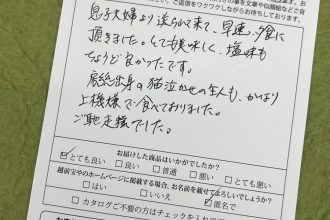 ご返信をワクワクしながらお待ちしております。
息子夫婦より送られて来て、早速、夕食に
頂きました。とても美味しく、塩味も
ちょうど良かったです。
房総出身の猫泣かせの主人も、かなり
上機嫌で食べておりました。
ご馳走様でした。
お届けした商品はいかがでしたか?
☑とても良い □良い □普通 □悪い □とても悪い
越前宝やのホームページに掲載する場合、お名前を載せてよろしいでしょうか?
□はい □いいえ ☑匿名で
□カタログご不要の方はチェックを入れて